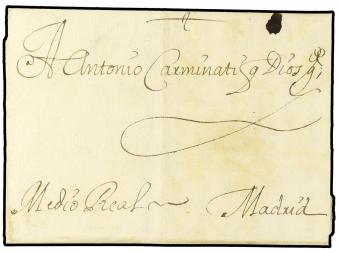 A Antonio Carminati q Dios gᵈᵉ
Medio Real Madrid